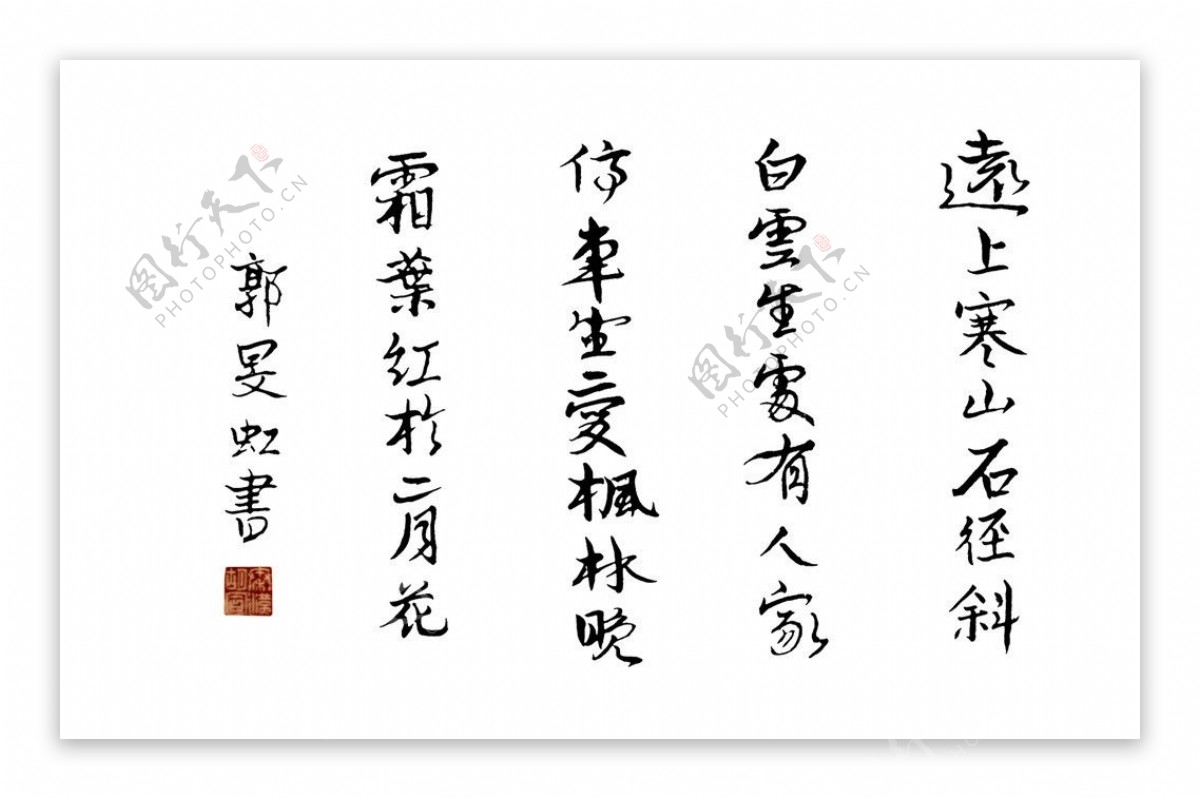 遠上寒山石径斜
白雲生處有人家
停車坐愛楓林晚
霜葉紅於二月花
郭旻虹書
图行天下
PHOTOPHOTO.CN
图行天下
PHOTOPHOTO.CN